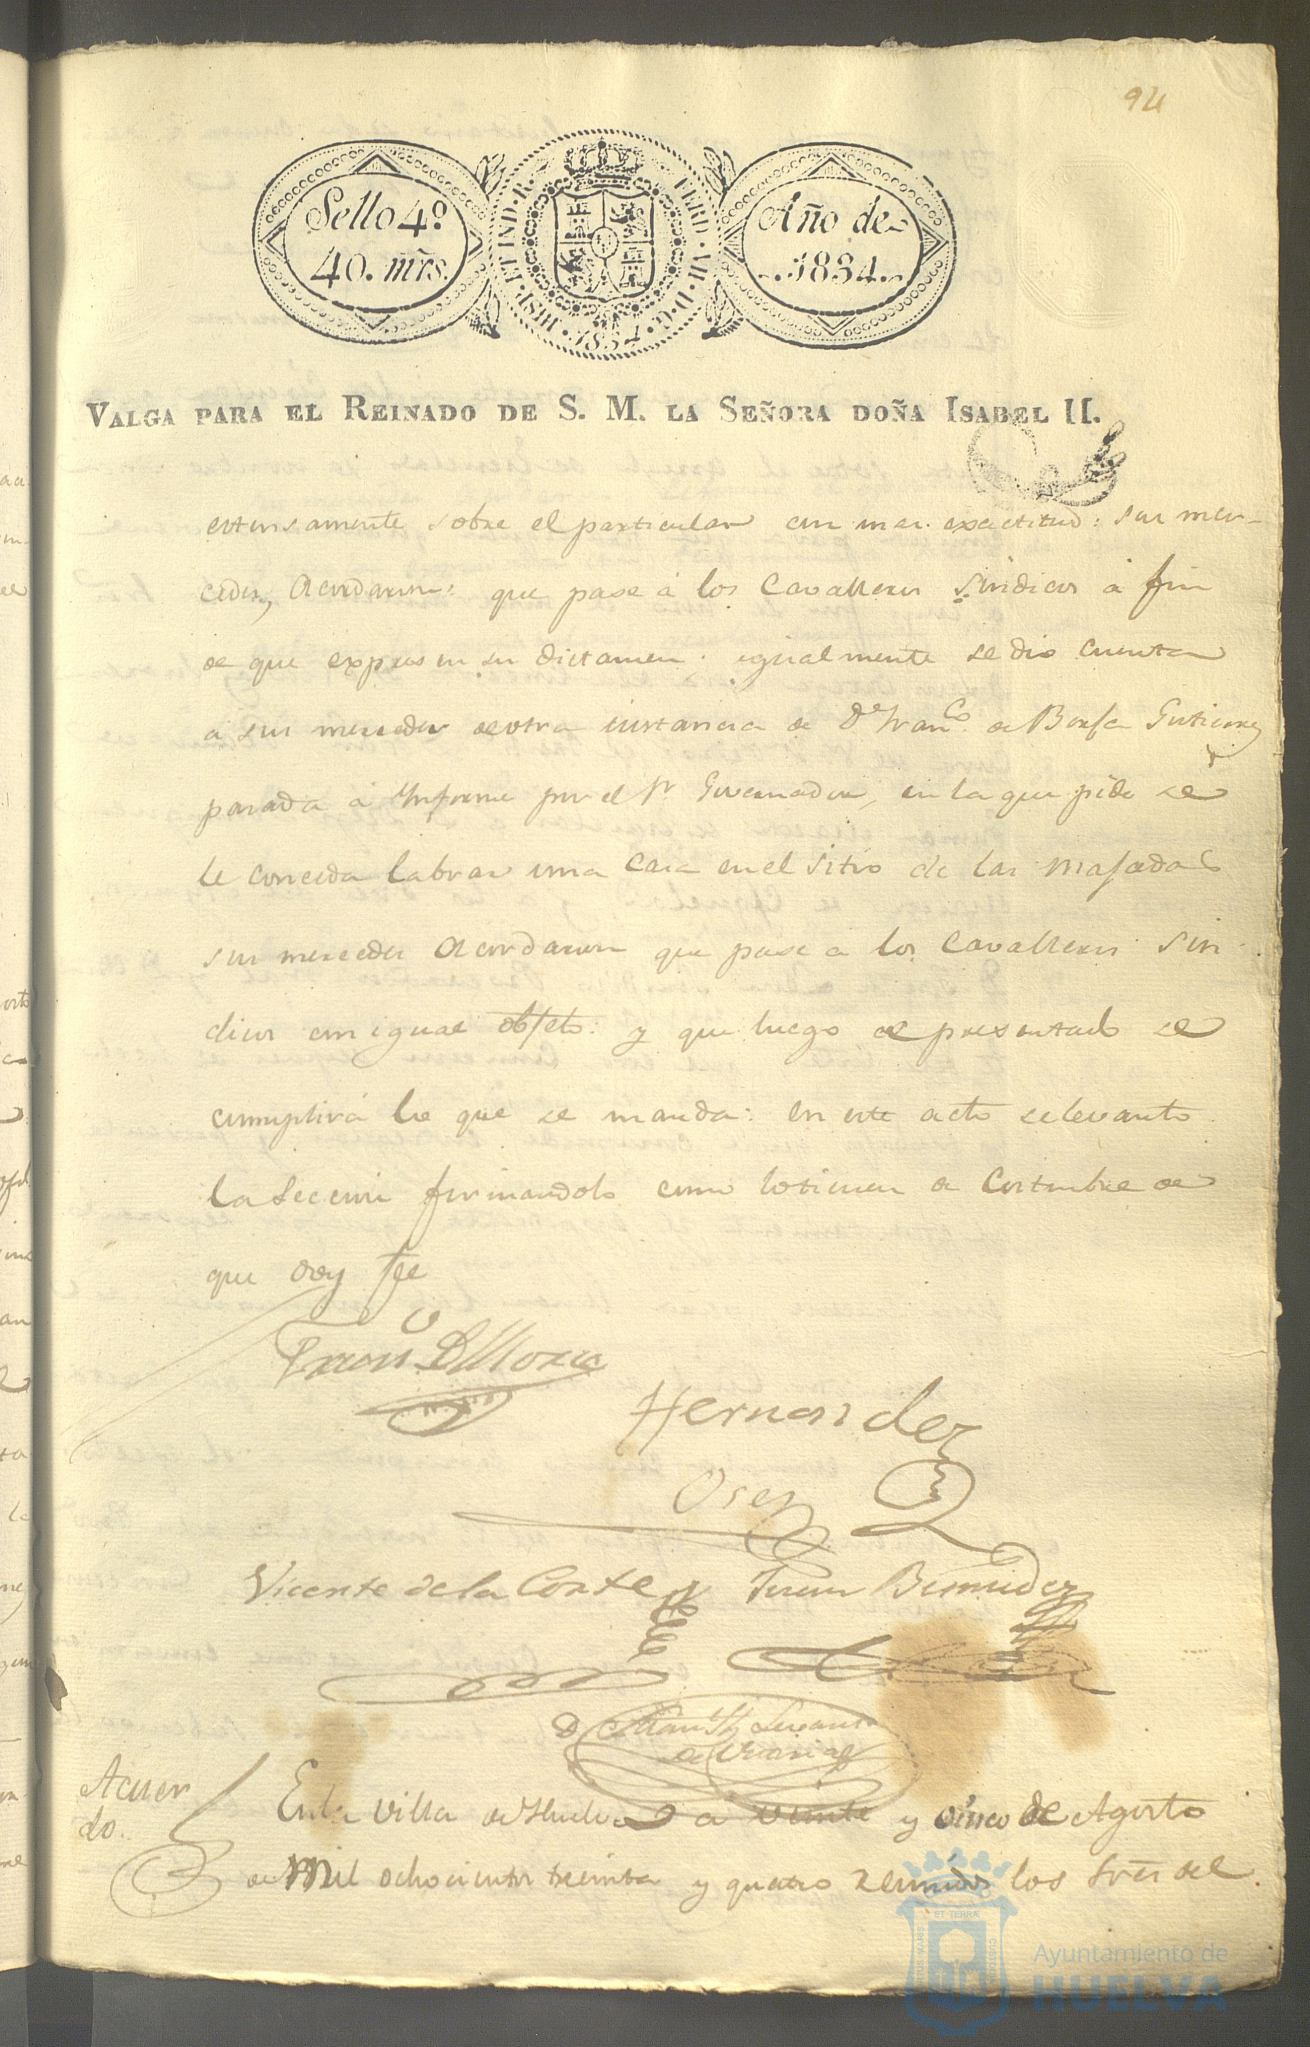 94
Sello 4º
40. mrs.
HISP. ET IND. R. FERD. VII. D. G. 1834
Año de
1834.
VALGA PARA EL REINADO DE S. M. LA SEÑORA DOÑA ISABEL II.
estensamente sobre el particular con mas exactitud: sus mer-
cedes, Acordaron: que pase á los Cavalleros sindicos á fin
de que expresen su dictamen. igualmente se dio cuenta
á sus mercedes de otra instancia de Dn Franco de Borja Gutierrez
pasada á Informe por el Sr Governador, en la que pide se
le conceda labrar una casa en el sitio de las Majadas
sus mercedes Acordaron que pase á los Cavalleros Sin-
dicos con igual objeto: y que luego de presentado se
cumplirá lo que se manda: en este acto se levanto
la Secion firmandolo como lo tienen de costumbre de
que doy fee
Hernandez
Vicente de la Corte
Bermudez
Acuer
do.
En la Villa de Huelva á veinte y cinco de Agosto
de Mil ochocientos treinta y quatro reunidos los Sres del
Ayuntamiento de
HUELVA